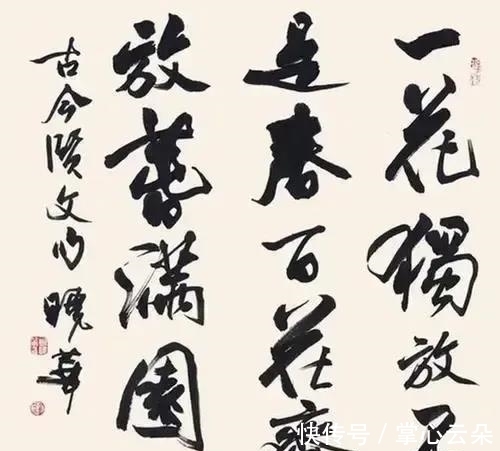 一花獨放不
是春百花齊
放春滿園
古今賢文句 曉華
快传号 / 掌心云朵